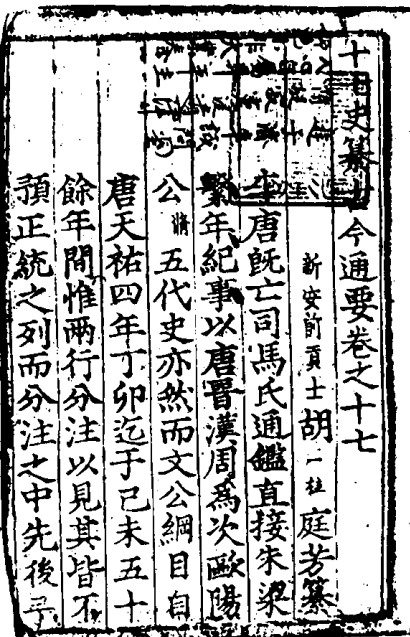 十七史纂古今通要卷之十七
新安前貢士胡一桂庭芳纂
唐旣亡司馬氏通鑑直接朱梁
繫年紀事以唐晉漢周爲次歐陽
公脩五代史亦然而文公綱目自
唐天祐四年丁卯迄于己未五十
餘年間惟兩行分注以見其皆不
預正統之列而分注之中先後予